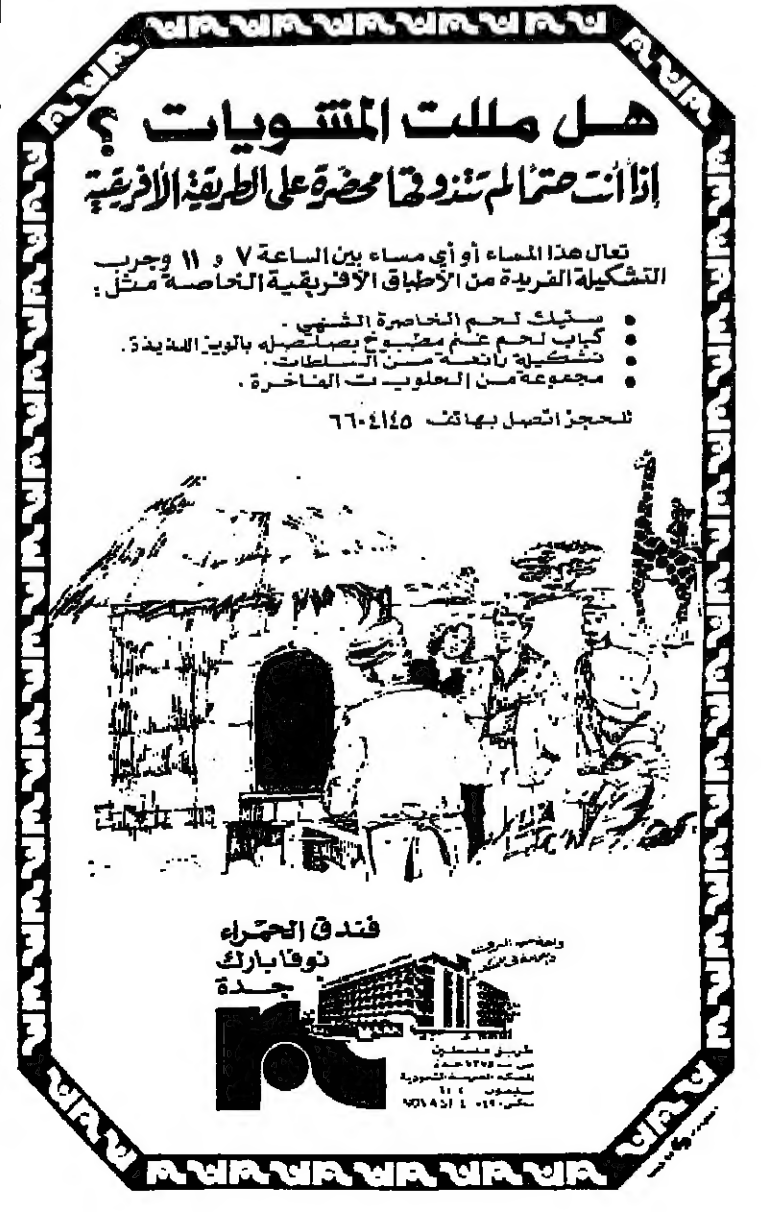 هل مللت المشويات ؟
إذاً أنت حتماً لم تتذوقها محضّرة على الطريقة الأفريقية
تعال هذا المساء أو أي مساء بين الساعة ٧ و ١١ وجرب
التشكيلة الفريدة من الأطباق الأفريقية الخاصة مثل :
• ستيك لحم الخاصرة الشهي .
• كباب لحم غنم مطبوخ بصلصله بالويز اللذيذة .
• تشكيلة رائعة من السلطات .
• مجموعة من الحلويات الفاخرة .
للحجز اتصل بهاتف ٦٦٠٤١٤٥
فندق الحمراء
نوفابارك
جدة
طريق فلسطين
جدة
المملكة العربية السعودية